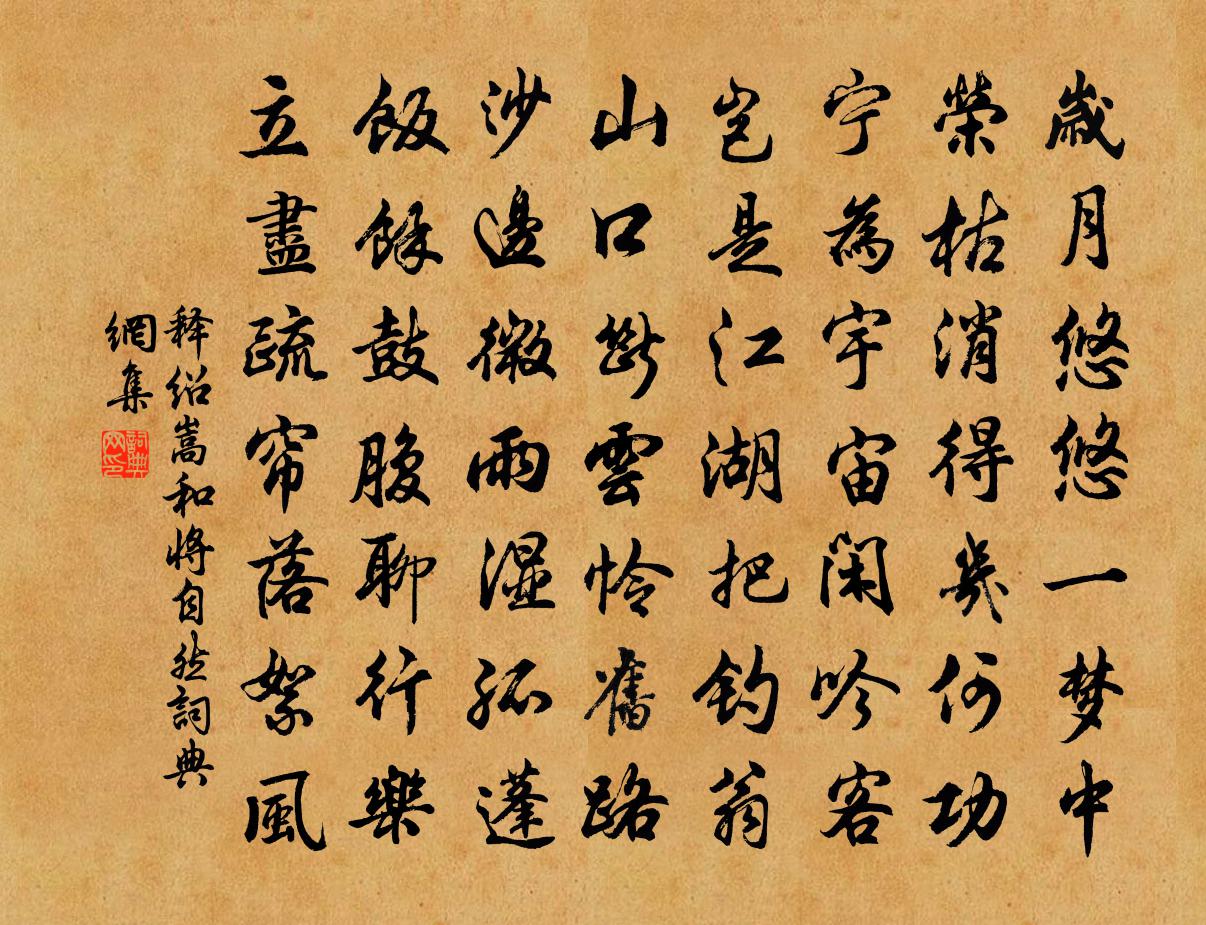 歲月悠悠一梦中
榮枯消得幾何功
宁為宇宙閑吟客
豈是江湖把鈎翁
山口斷雲怜舊路
沙邊微雨濕孤蓬
飯餘鼓腹聊行樂
立盡疏帘落絮風
释绍嵩和將自然詞典
網集
詞典